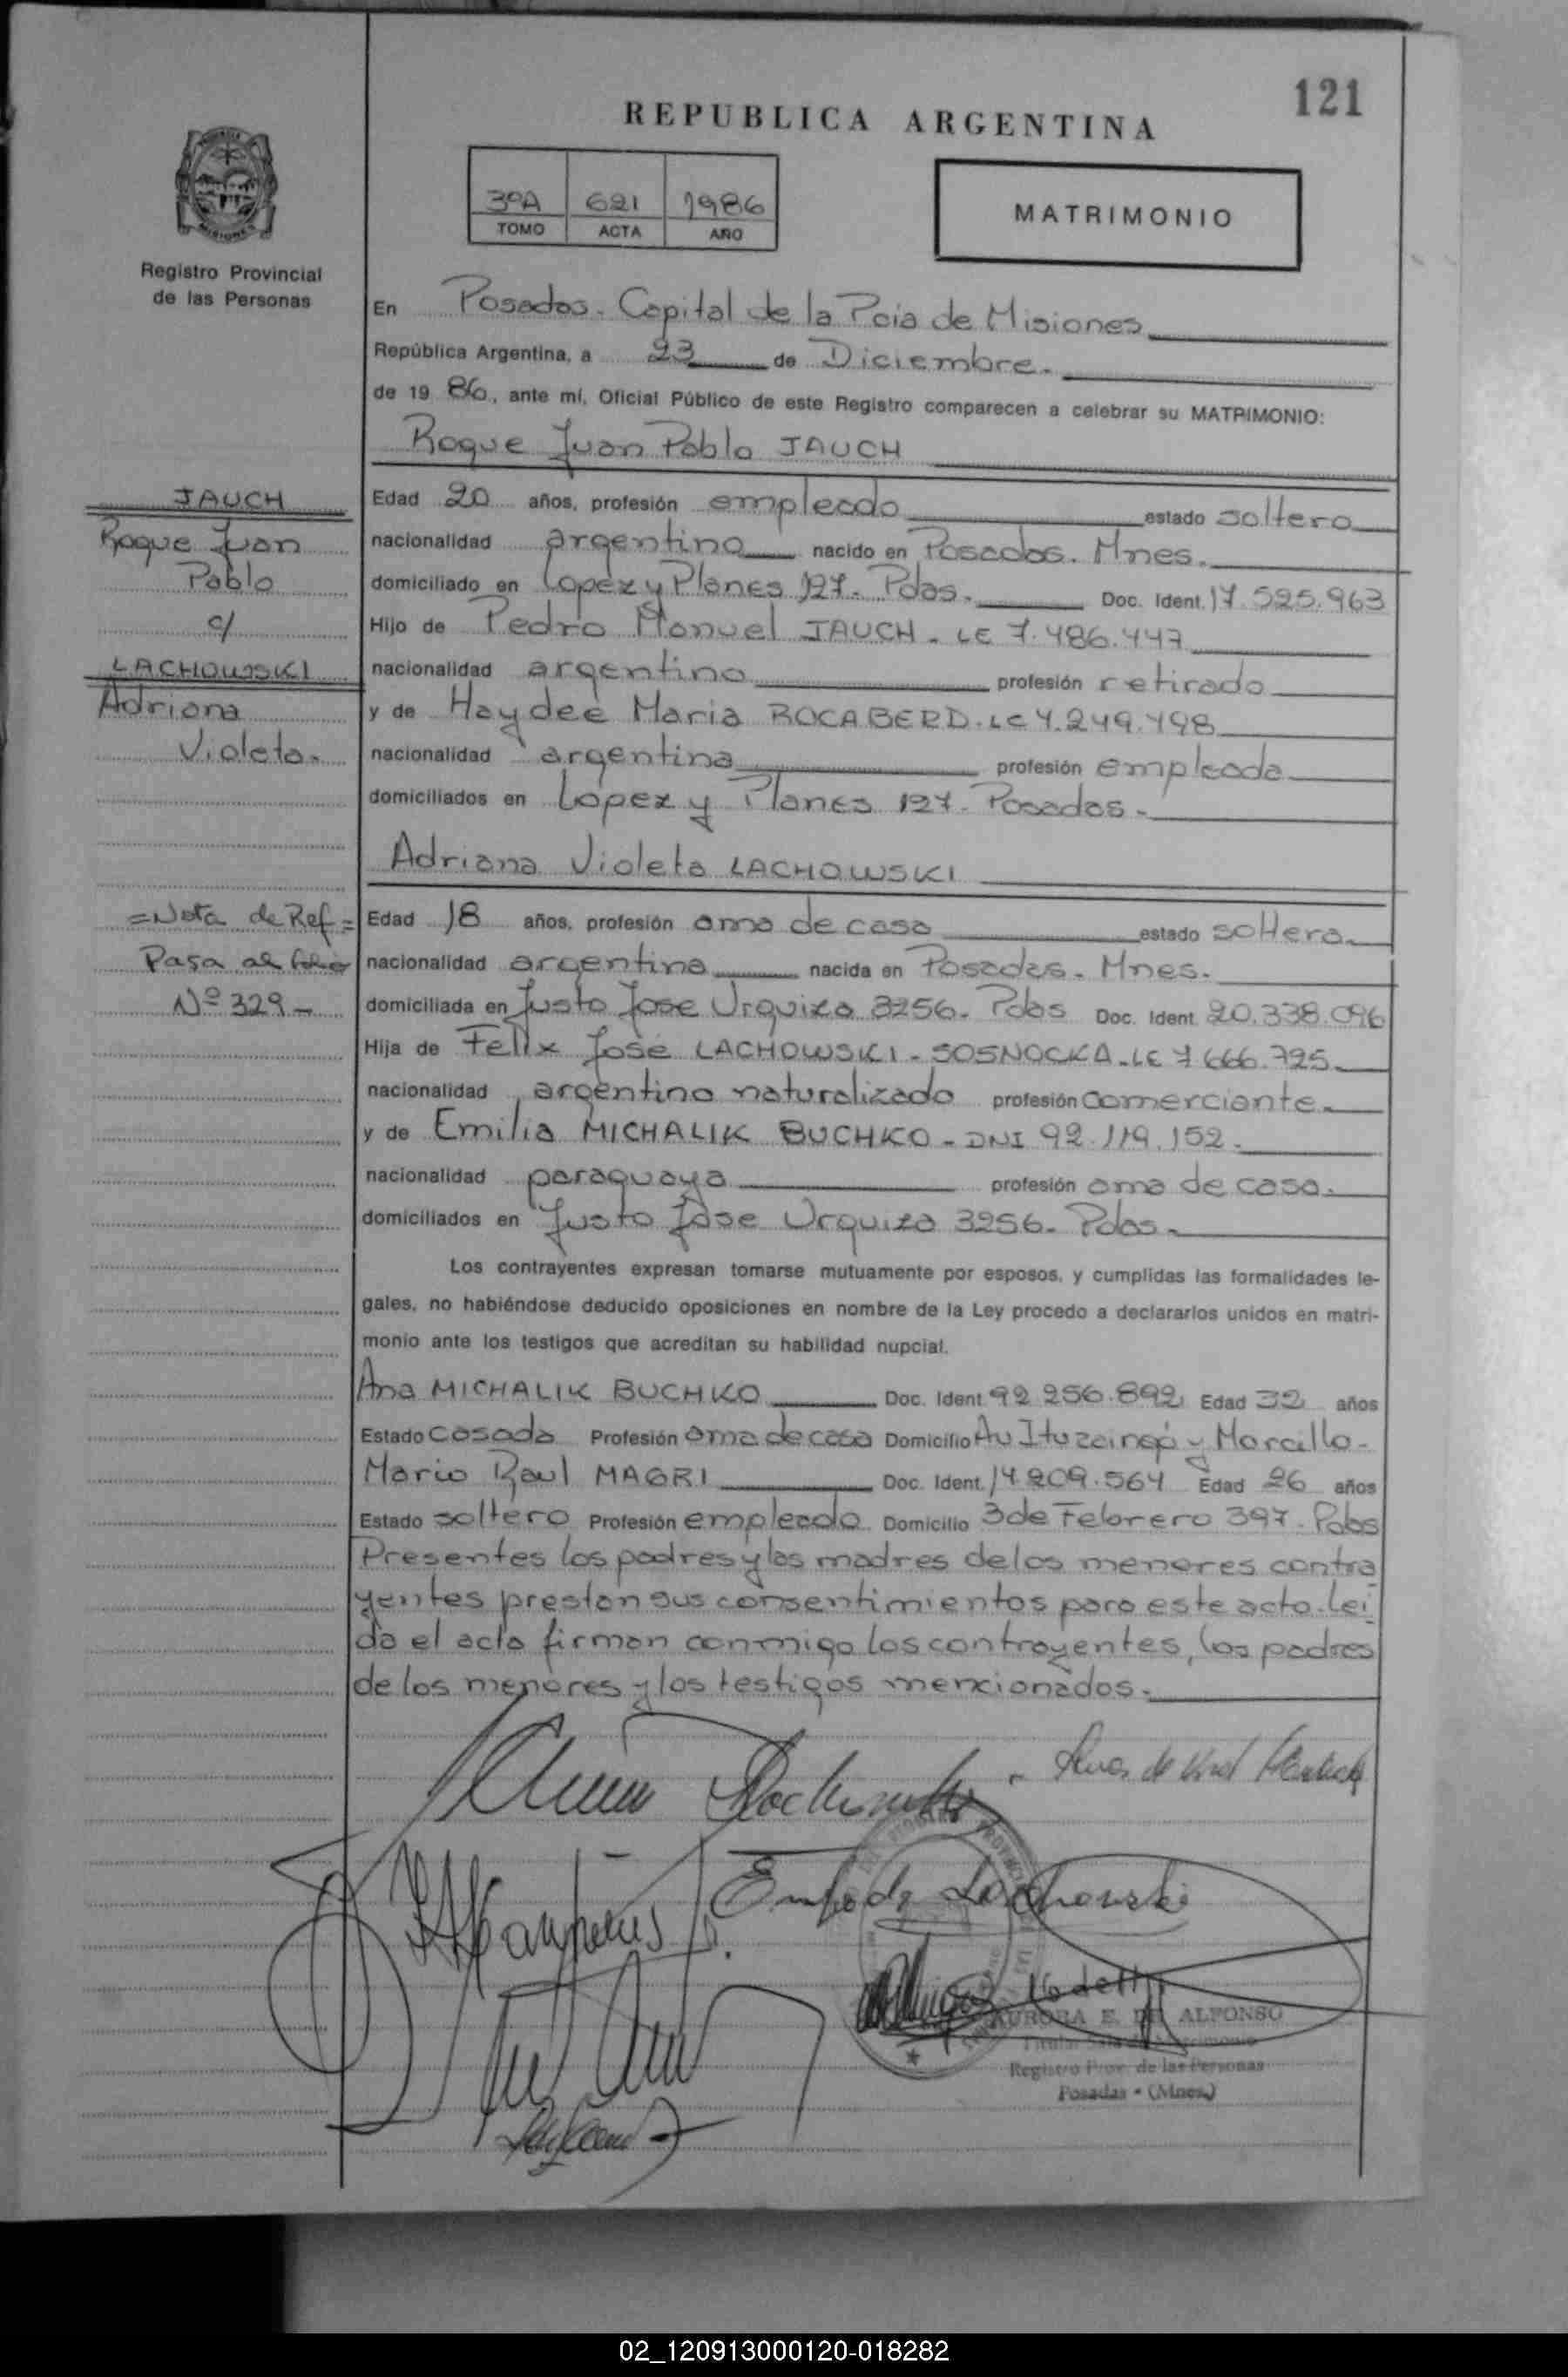 121
REPUBLICA ARGENTINA
3ºA 621 1986
TOMO ACTA AÑO
MATRIMONIO
MISIONES
Registro Provincial
de las Personas
En Posadas. Capital de la Pcia de Misiones
República Argentina, a 23 de Diciembre.
de 19 86, ante mí, Oficial Público de este Registro comparecen a celebrar su MATRIMONIO:
Roque Juan Pablo JAUCH
JAUCH
Roque Juan
Pablo
c/
LACHOWSKI
Adriana
Violeta.
Edad 20 años, profesión empleado estado soltero
nacionalidad argentino nacido en Posadas. Mnes.
domiciliado en Lopez y Planes 127. Pdas. Doc. Ident. 17.525.963
Hijo de Pedro Manuel JAUCH. LE 7.486.447
nacionalidad argentino profesión retirado
y de Haydeé Maria ROCABERD. LC 4.249.498
nacionalidad argentina profesión empleada
domiciliados en Lopez y Planes 127. Posadas.
Adriana Violeta LACHOWSKI
=Nota de Ref=
Pasa al folio
Nº 329-
Edad 18 años, profesión ama de casa estado soltera.
nacionalidad argentina nacida en Posadas. Mnes.
domiciliada en Justo Jose Urquiza 3256. Pdas Doc. Ident. 20.338.096
Hija de Felix José LACHOWSKI - SOSNOCKA. LE 7 666.725.
nacionalidad argentino naturalizado profesión comerciante.
y de Emilia MICHALIK BUCHKO - DNI 92.119.152.
nacionalidad paraguaya profesión ama de casa.
domiciliados en Justo Jose Urquiza 3256. Pdas.
Los contrayentes expresan tomarse mutuamente por esposos, y cumplidas las formalidades le-
gales, no habiéndose deducido oposiciones en nombre de la Ley procedo a declararlos unidos en matri-
monio ante los testigos que acreditan su habilidad nupcial.
Ana MICHALIK BUCHKO Doc. Ident. 92 256.892 Edad 32 años
Estado casada Profesión ama de casa Domicilio Av Ituzaingó y Morcillo.
Mario Raul MAGRI Doc. Ident. 14.209.564 Edad 26 años
Estado soltero Profesión empleado Domicilio 3 de Febrero 397. Pdas
Presentes los padres y las madres de los menores contra
yentes prestan sus consentimientos para este acto. Lei
da el acta firman conmigo los contrayentes, los padres
de los menores y los testigos mencionados.
Lachowski
AURORA E. DE ALFONSO
Registro Prov. de las Personas
Posadas - (Mnes.)
02_120913000120-018282